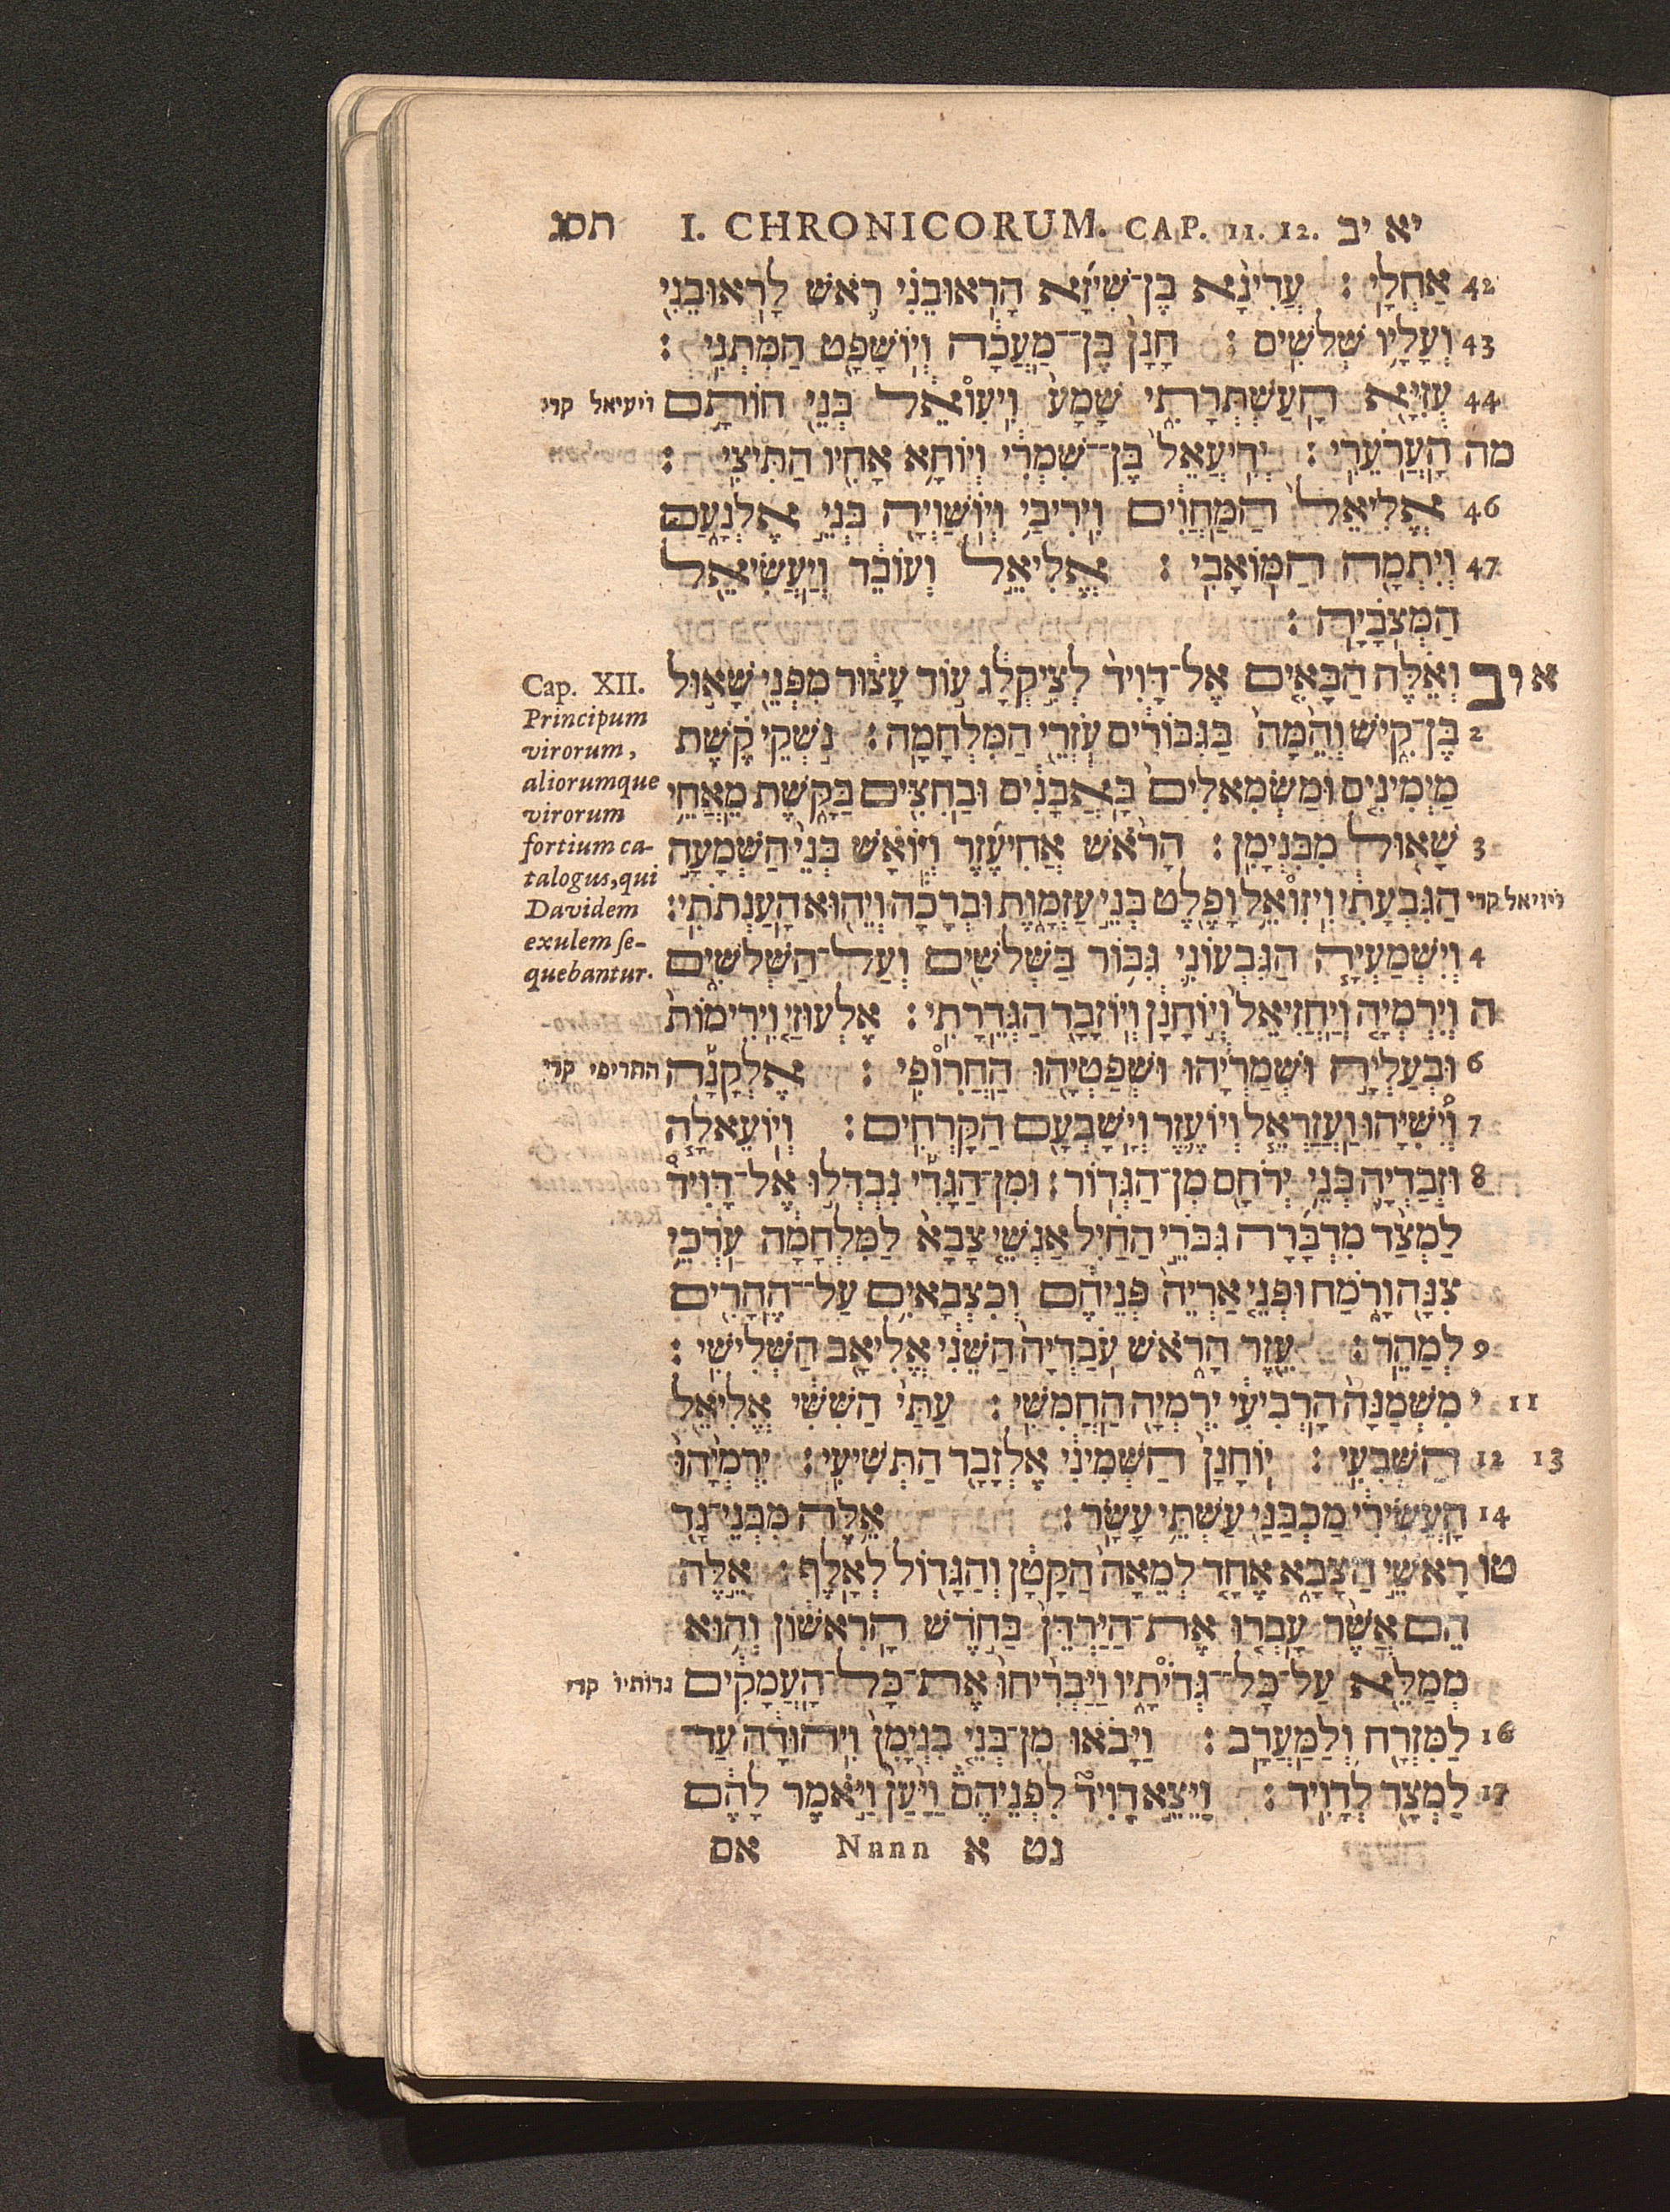 יא יב I. CHRONICORUM. CAP. 11. 12. תסג
42 אַחְלָי : עֲדִינָא בֶן־שִׁיזָא הָרְאוּבֵנִי רֹאשׁ לָרְאוּבֵנִי
43 וְעָלָיו שְׁלֹשִׁים : חָנָן בֶּן־מַעֲכָה וְיוֹשָׁפָט הַמִּתְנִי :
44 עֻזִּיָּא הָעַשְׁתְּרָתִי שָׁמָע וִיעוּאֵל בְּנֵי חוֹתָם
ויעיאל קרי
מה הָעֲרֹעֵרִי : יְדִיעֲאֵל בֶּן־שִׁמְרִי וְיוֹחָא אָחִיו הַתִּיצִי :
46 אֱלִיאֵל הַמַּחֲוִים וִירִיבַי וְיוֹשַׁוְיָה בְּנֵי אֶלְנָעַם
47 וְיִתְמָה הַמּוֹאָבִי : אֱלִיאֵל וְעוֹבֵד וְיַעֲשִׂיאֵל
הַמְּצֹבָיָה :
א יב וְאֵלֶּה הַבָּאִים אֶל־דָּוִיד לְצִיקְלַג עוֹד עָצוּר מִפְּנֵי שָׁאוּל
2 בֶּן־קִישׁ וְהֵמָּה בַּגִּבּוֹרִים עֹזְרֵי הַמִּלְחָמָה : נֹשְׁקֵי קֶשֶׁת
מַיְמִינִים וּמַשְׂמִאלִים בָּאֲבָנִים וּבַחִצִּים בַּקָּשֶׁת מֵאֲחֵי
3 שָׁאוּל מִבִּנְיָמִן : הָרֹאשׁ אֲחִיעֶזֶר וְיוֹאָשׁ בְּנֵי הַשְּׁמָעָה
ויזיאל קרי הַגִּבְעָתִי וִיזוּאֵל וָפֶלֶט בְּנֵי עַזְמָוֶת וּבְרָכָה וְיֵהוּא הָעַנְּתֹתִי :
4 וְיִשְׁמַעְיָה הַגִּבְעוֹנִי גִּבּוֹר בַּשְּׁלֹשִׁים וְעַל־הַשְּׁלֹשִׁים
ה וְיִרְמְיָה וְיַחֲזִיאֵל וְיוֹחָנָן וְיוֹזָבָד הַגְּדֵרָתִי : אֶלְעוּזַי וִירִימוֹת
6 וּבְעַלְיָה וּשְׁמַרְיָהוּ וּשְׁפַטְיָהוּ הַחֲרוּפִי : אֶלְקָנָה
החריפי קרי
7 וְיִשִּׁיָּהוּ וַעֲזַרְאֵל וְיוֹעֶזֶר וְיָשָׁבְעָם הַקָּרְחִים : וְיוֹעֵאלָה
8 וּזְבַדְיָה בְּנֵי יְרֹחָם מִן־הַגְּדוֹר : וּמִן־הַגָּדִי נִבְדְּלוּ אֶל־דָּוִיד
לַמְצַד מִדְבָּרָה גִּבֹּרֵי הַחַיִל אַנְשֵׁי צָבָא לַמִּלְחָמָה עֹרְכֵי
צִנָּה וָרֹמַח וּפְנֵי אַרְיֵה פְּנֵיהֶם וְכִצְבָאיִם עַל־הֶהָרִים
9 לְמַהֵר : עֵזֶר הָרֹאשׁ עֹבַדְיָה הַשֵּׁנִי אֱלִיאָב הַשְּׁלִישִׁי :
י 11 מִשְׁמַנָּה הָרְבִיעִי יִרְמְיָה הַחֲמִשִׁי : עַתַּי הַשִּׁשִּׁי אֱלִיאֵל
12 13 הַשְּׁבִעִי : יוֹחָנָן הַשְּׁמִינִי אֶלְזָבָד הַתְּשִׁיעִי : יִרְמְיָהוּ
14 הָעֲשִׂירִי מַכְבַּנַּי עַשְׁתֵּי עָשָׂר : אֵלֶּה מִבְּנֵי־גָד
טו רָאשֵׁי הַצָּבָא אֶחָד לְמֵאָה הַקָּטָן וְהַגָּדוֹל לְאָלֶף : אֵלֶּה
הֵם אֲשֶׁר עָבְרוּ אֶת־הַיַּרְדֵּן בַּחֹדֶשׁ הָרִאשׁוֹן וְהוּא
מְמַלֵּא עַל־כָּל־גְּדִיֹתָיו וַיַּבְרִיחוּ אֶת־כָּל־הָעֲמָקִים
גדותיו קרי
16 לַמִּזְרָח וְלַמַּעֲרָב : וַיָּבֹאוּ מִן־בְּנֵי בִנְיָמִן וִיהוּדָה עַד־
17 לַמְצָד לְדָוִיד : וַיֵּצֵא דָוִיד לִפְנֵיהֶם וַיַּעַן וַיֹּאמֶר לָהֶם
נט א Nnnn אם
Cap. XII.
Principum
virorum,
aliorumque
virorum
fortium ca-
talogus, qui
Davidem
exulem se-
quebantur.